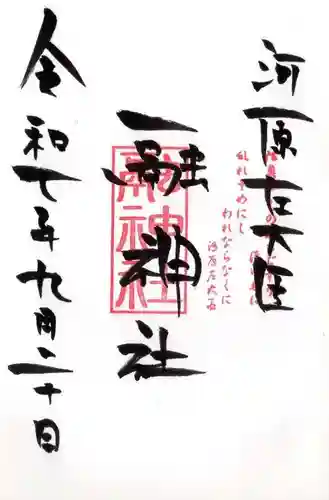 河原左大臣
乱れそめにし
われならなくに
河原左大臣
融神社
融神社
令和七年九月二十日